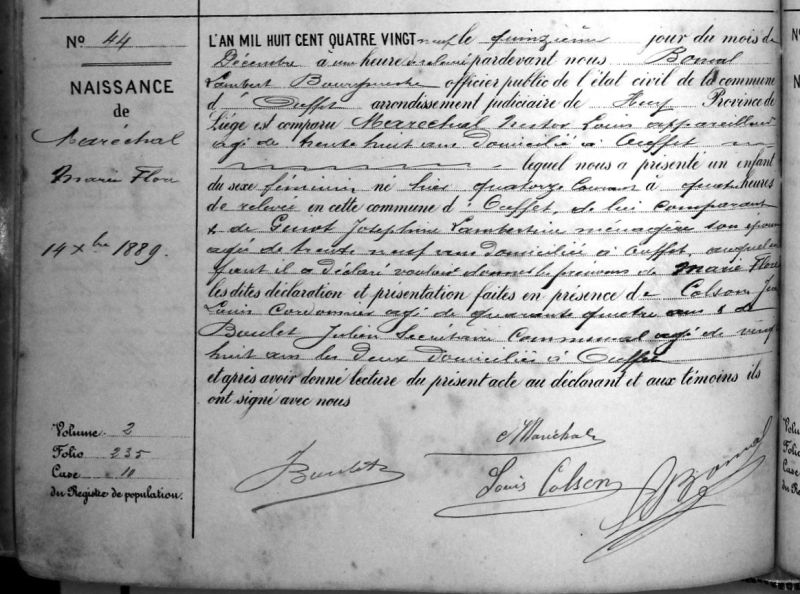 No 44
NAISSANCE
de
Maréchal
Marie Flore
14 Xbre 1889.
Volume 2
Folio 235
Case 10
du Registre de population.
L'AN MIL HUIT CENT QUATRE VINGT neuf le quinzième jour du mois de
Décembre à une heure relevée pardevant nous Bonal
Lambert Bourgmestre officier public de l'état civil de la commune
d' Ouffet arrondissement judiciaire de Huy Province de
Liége est comparu Maréchal Nestor Louis appareilleur
agé de trente huit ans domicilié à Ouffet
lequel nous a présenté un enfant
du sexe féminin né hier quatorze courant à quatre heures
de relevée en cette commune d'Ouffet, de lui comparant
& de Genot Joséphine Lambertine ménagère son épouse
agée de trente neuf ans domiciliée à Ouffet auquel en
fant il a déclaré vouloir donner les prénoms de Marie Flore
les dites déclaration et présentation faites en présence de Colson Jean
Louis Cordonnier agé de quarante quatre ans & de
Baulet Julien Secrétaire Communal agé de vingt
huit ans les deux domiciliés à Ouffet
et après avoir donné lecture du présent acte au déclarant et aux témoins ils
ont signé avec nous
Maréchal
Baulet
Louis Colson
No
Volu
Folio
Case
du Re